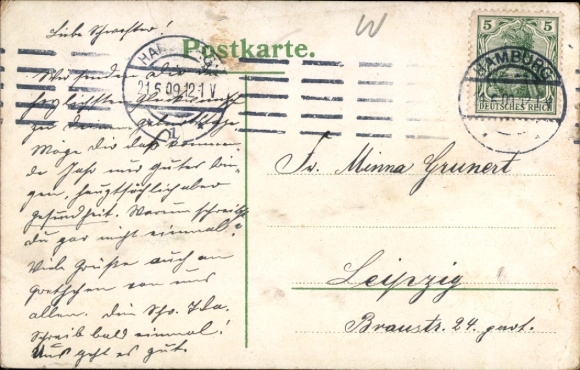 Liebe Schwester!
Postkarte.
Wir senden also die
herzlichsten Glückwünsche
zu Deinem Geburtstage.
Möge dir das kommen-
de Jahr nur gutes brin-
gen, hauptsächlich aber
Gesundheit. Warum schreibst
du gar nicht einmal?
Viele Grüße auch an
Gretchen von uns
allen. Dein Schw. Ida.
Schreib bald einmal!
Uns geht es gut.
HAMBURG
21.5.09.12-1 V
5 5
HAMBURG
DEUTSCHES REICH
Fr. Minna Grunert
Leipzig
Braustr. 24. part.